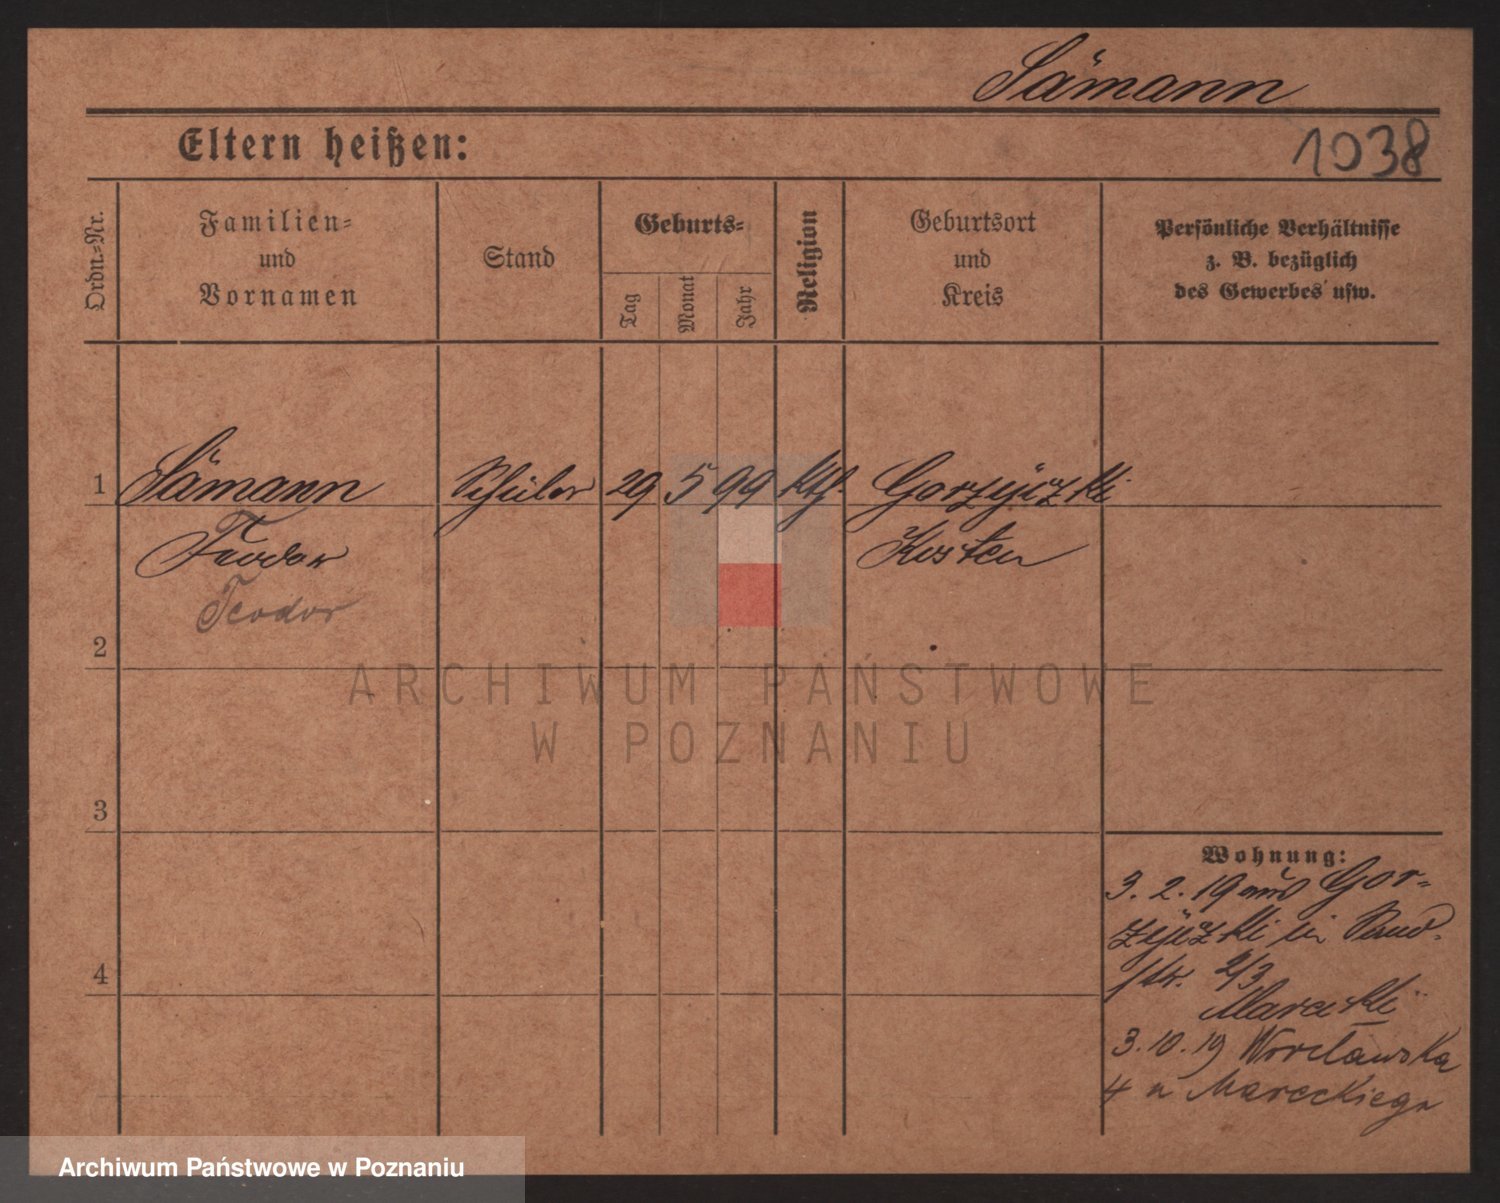 Sämann
Eltern heißen:
1038
Ordn.-Nr.
Familien-
und
Vornamen
Stand
Geburts-
Tag
Monat
Jahr
Religion
Geburtsort
und
Kreis
Persönliche Verhältnisse
z. B. bezüglich
des Gewerbes usw.
1 Sämann Schüler 29 5 99 kth. Gorzyczki
Teodor Kosten
Teodor
2
3
4
Wohnung:
3. 2. 19 aus Gor-
zyczki in
str. 2/3
Marecki
3. 10. 19 Wrocławska
4 u Mareckiego
ARCHIWUM PAŃSTWOWE
W POZNANIU
Archiwum Państwowe w Poznaniu